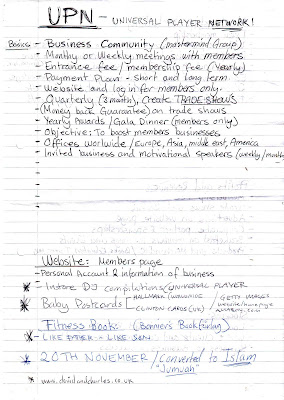 UPN - UNIVERSAL PLAYER NETWORK!
Basics - Business Community (mastermind Group)
- Monthy or Weekly meetings with members
- Entrance fee / membership fee (Yearly)
- Payment Plan - short and long term
- Website and log in for members only
- Quarterly (3 month), Create TRADE SHOWS
- (Money back Guarantee) on trade shows
- Yearly Awards / Gala Dinner (members only)
- Objective: To boost members businesses
- Offices worlwide / europe, Asia, middle east, America
- Invited business and motivational speakers (weekly/monthly
Website: Members page
- Personal Account & information of business
- Instore DJ compilations / UNIVERSAL PLAYER
Baby Postcards - HALLMARK (WORLDWIDE)
CLINTON CARDS (UK)
GETTY IMAGES
website/homepage
Fitness Book:
- LIKE FATHER - LIKE SON
20TH NOVEMBER / Converted to Islam
"Jumuah"
www.davidandcharles.co.uk